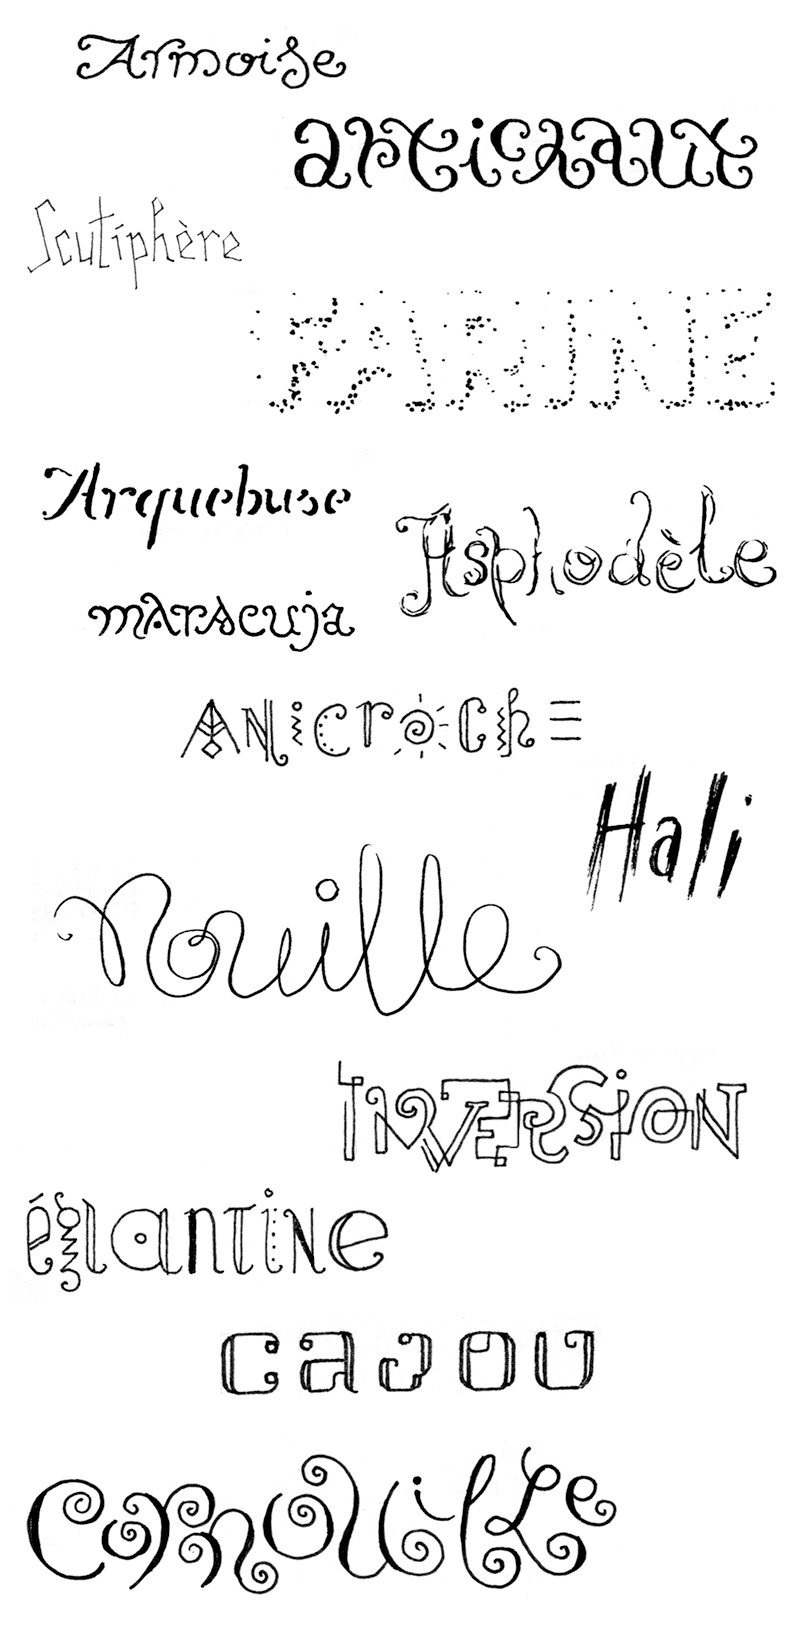 Armoise
artichaut
Scutiphère
FARINE
Arquebuse
Asphodèle
maracuja
ANicrochE
Hali
Nouille
INVERSiON
églantine
cajou
Cornouille